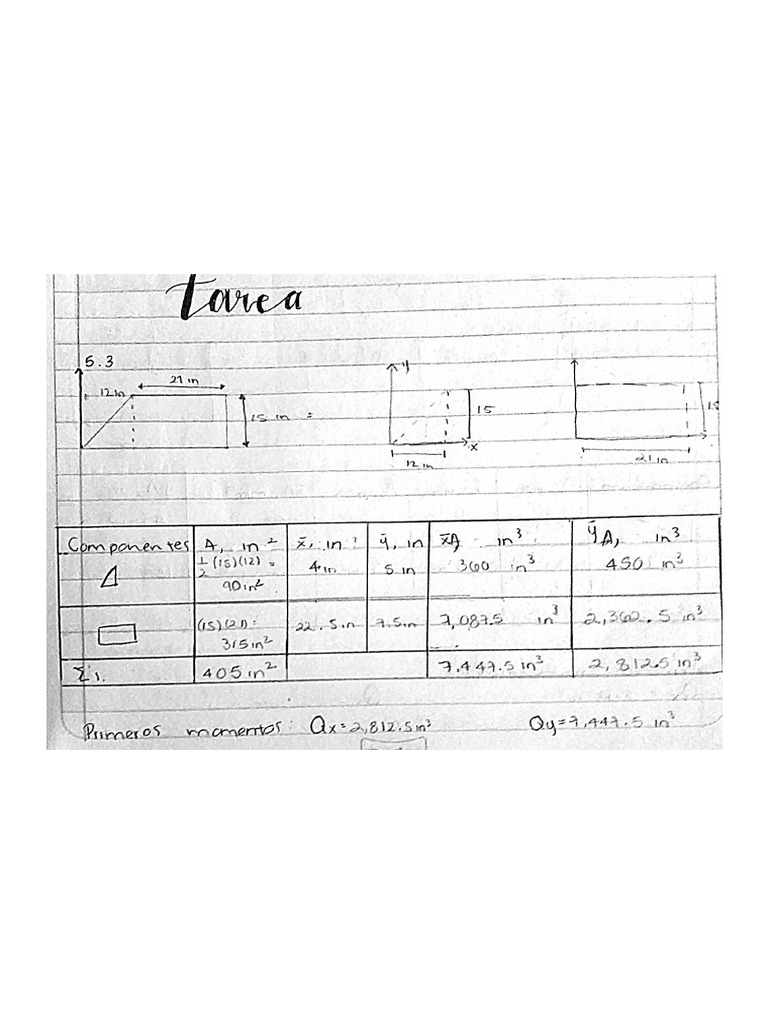 Tarea
5.3
21 in
12 in
15 in =
y
15
x
12 in
15
21 in
Componentes A, in² x̄, in ȳ, in x̄A in³ ȳA, in³
½ (15)(12) = 90 in² 4 in 5 in 360 in³ 450 in³
(15)(21): 315 in² 22.5 in 7.5 in 7,087.5 in³ 2,362.5 in³
Σ 405 in² 7,447.5 in³ 2,812.5 in³
Primeros momentos: Qx=2,812.5 in³ Qy=7,447.5 in³